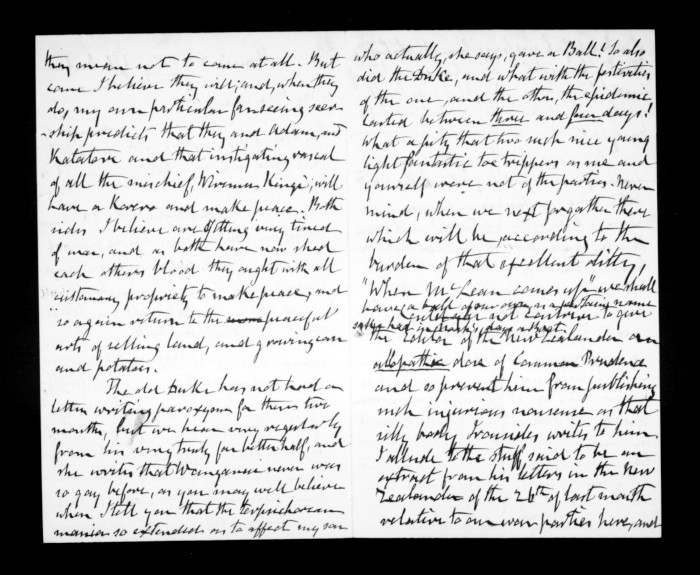 they mean not to come at all. But
come I believe they will; and, when they
do, my own particular farseeing seer-
-ship predicts that they and Adam, and
Katatore and that instigating rascal
of all the mischief, Wiremu Kingi, will
have a Korero and make peace. Both
sides I believe are getting very tired
of war, and as both have now shed
each others blood they ought with all
"customary propriety to make peace, and
so again return to the peaceful
arts of selling land, and growing corn
and potatoes.
The old Duke has not had a
letter writing paroxysm for these two
months, but we hear very regularly
from his very truly far better half, and
she writes that Wanganui never was
so gay before, as you may well believe
when I tell you that the terpsichorean
mania so extended as to affect my son
who actually, she says, gave a Ball! So also
did the Duke, and what with the festivities
of the one, and the other, the epidemic
lasted between three and four days!
What a pity that two such nice young
light fantastic toe trippers as me and
yourself were not of the parties. Never
mind, when we next forgather there
which will be, according to the
burden of that excellent ditty,
"When McLean comes up" we shall
have a ball of our own, as a certain
not contrive to give
the Editor of the New Zealander an
allopathic dose of Common Prudence
and so prevent him from publishing
such injurious nonsense as that
silly body Ironsides writes to him.
I allude to the stuff said to be an
extract from his letters in the New
Zealander of the 26th of last month
relative to our war parties here, and